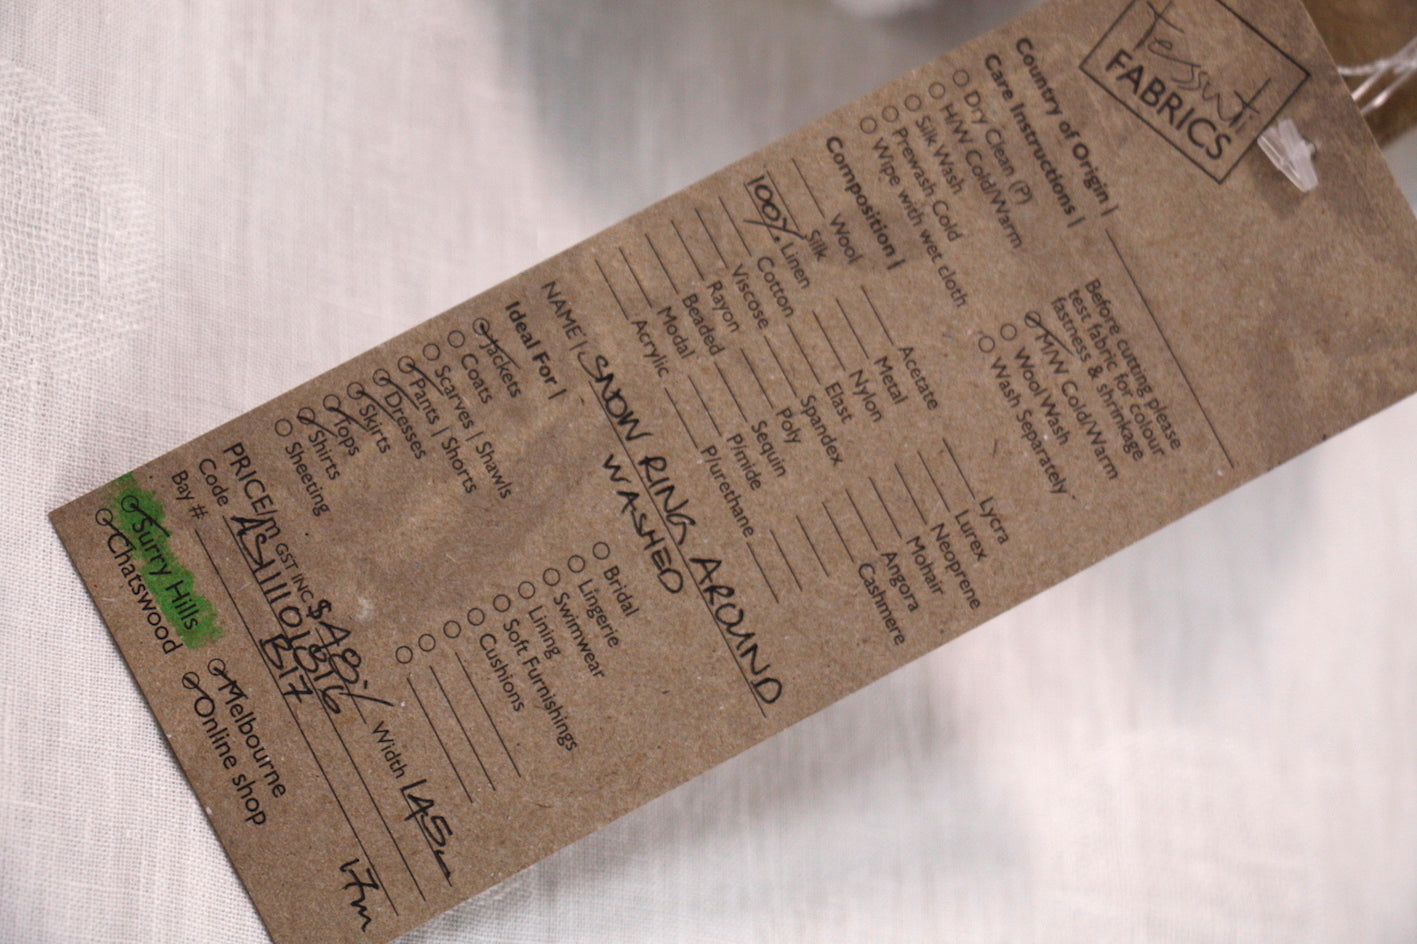 tessuti
FABRICS
Country of Origin |
Care Instructions |
Dry Clean (P)
H/W Cold/Warm
Silk Wash
Prewash Cold
Wipe with wet cloth
Before cutting please
test fabric for colour
fastness & shrinkage
M/W Cold/Warm
Wool Wash
Wash Separately
Composition |
Wool
Silk
100% Linen
Cotton
Viscose
Rayon
Beaded
Modal
Acrylic
Acetate
Metal
Nylon
Elast
Spandex
Poly
Sequin
P/mide
P/urethane
Lycra
Lurex
Neoprene
Mohair
Angora
Cashmere
NAME | SNOW RING AROUND
WASHED
Ideal For |
Jackets
Coats
Scarves | Shawls
Pants | Shorts
Dresses
Skirts
Tops
Shirts
Sheeting
Bridal
Lingerie
Swimwear
Lining
Soft Furnishings
Cushions
PRICE/m GST INC Width 145
Code
Bay #: B17
17m
Surry Hills
Chatswood
Melbourne
Online shop